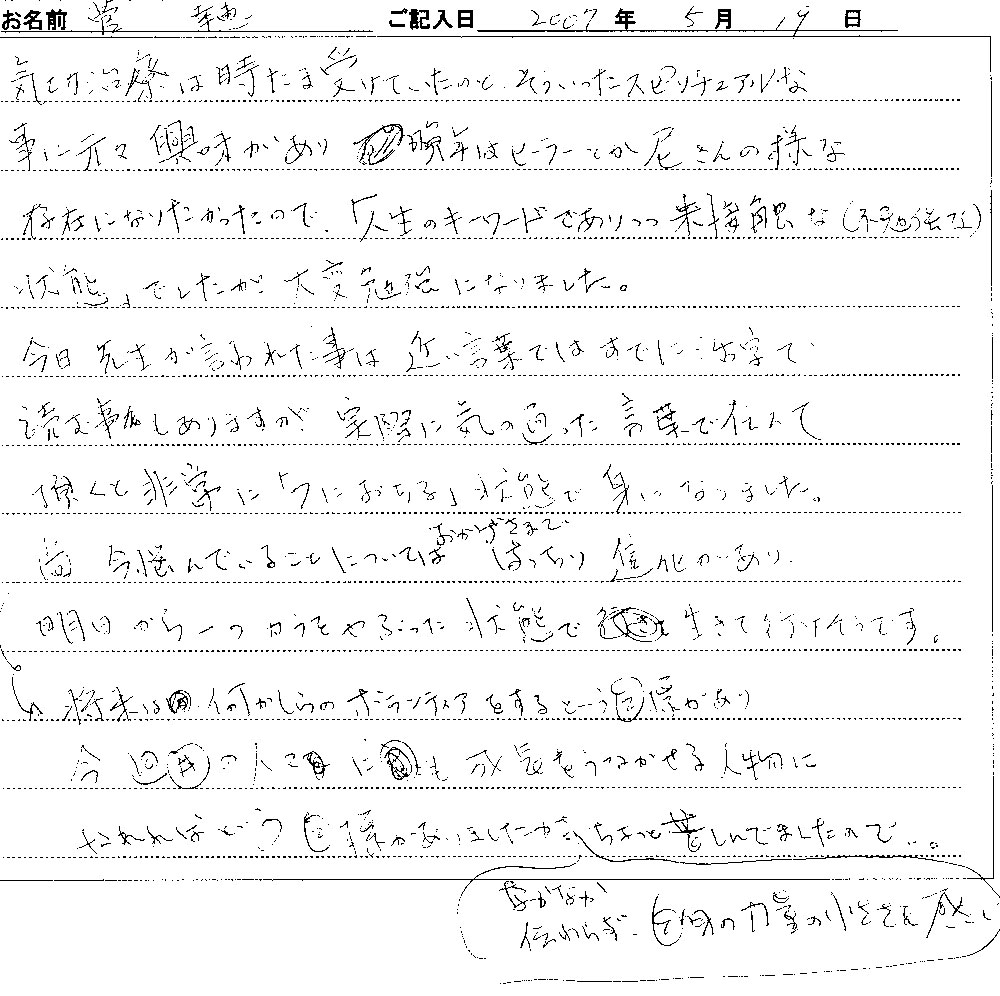 お名前 菅 ご記入日 2007年 5月 19日
気功治療は時たま受けていたのと、そういったスピリチュアルな
事に元々興味があり 晩年はヒーラーとか尼さんの様な
存在になりたかったので、「人生のキーワードでありつつ未接触な(不勉強な)
状態」でしたが大変勉強になりました。
今日先生が言われた事は近い言葉ではすでに活字で
読む事もありますが実際に気の通った言葉で伝えて
頂くと非常に「フにおちる」状態で身になりました。
尚 今悩んでいることについては おかげさまで ばっちり進化があり、
明日から一つカラをやぶった状態で 生きて行けそうです。
将来は 何かしらのボランティアをするという目標があり
今 回りの人 にも成長をうながせる人物に
なれればという目標がありましたがちょっと苦しんでましたので…。
なかなか
伝わらず、自身の力量の小ささを感じ